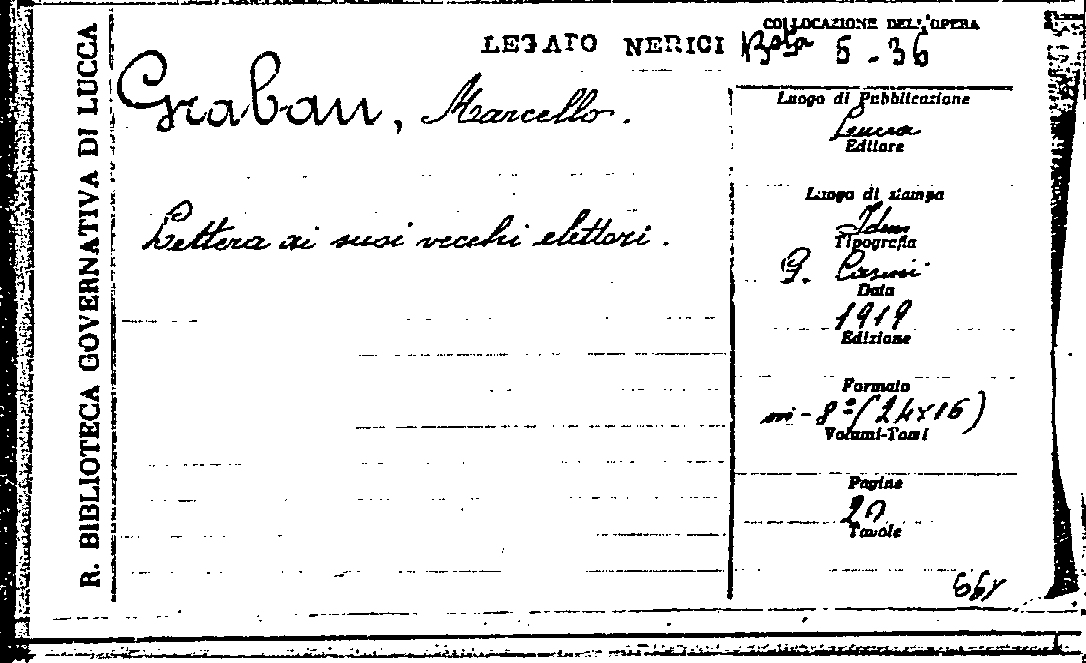 R. BIBLIOTECA GOVERNATIVA DI LUCCA
LEGATO NERICI
COLLOCAZIONE DELL'OPERA
Bsta 5.36
Grabau, Marcello.
Lettera ai suoi vecchi elettori.
Luogo di Pubblicazione
Lucca
Editore
Luogo di stampa
Idem
Tipografia
G. Casini
Data
1919
Edizione
Formato
in-8º (24x16)
Volumi-Tomi
Pagine
20
Tavole